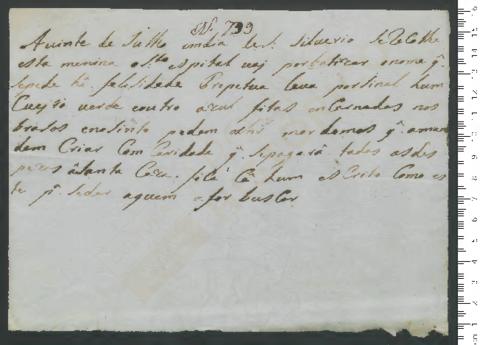 N. 799
A vinte de Julho india de S. Silverio se Recolhe
esta menina o Sto espital vai por batizar o nome q.
se pede he felesidade Prepetua leva por sinal hum
Cueiro verde e outro azul fitas encarnadas nos
brasos e no sinto pedem aos mordomos q. a man
dem Criar Com Caridade q. se pagará todas as des
pezas á Santa Caza. fica Cá hum escrito Como es
te pª se dar a quem a for buscar